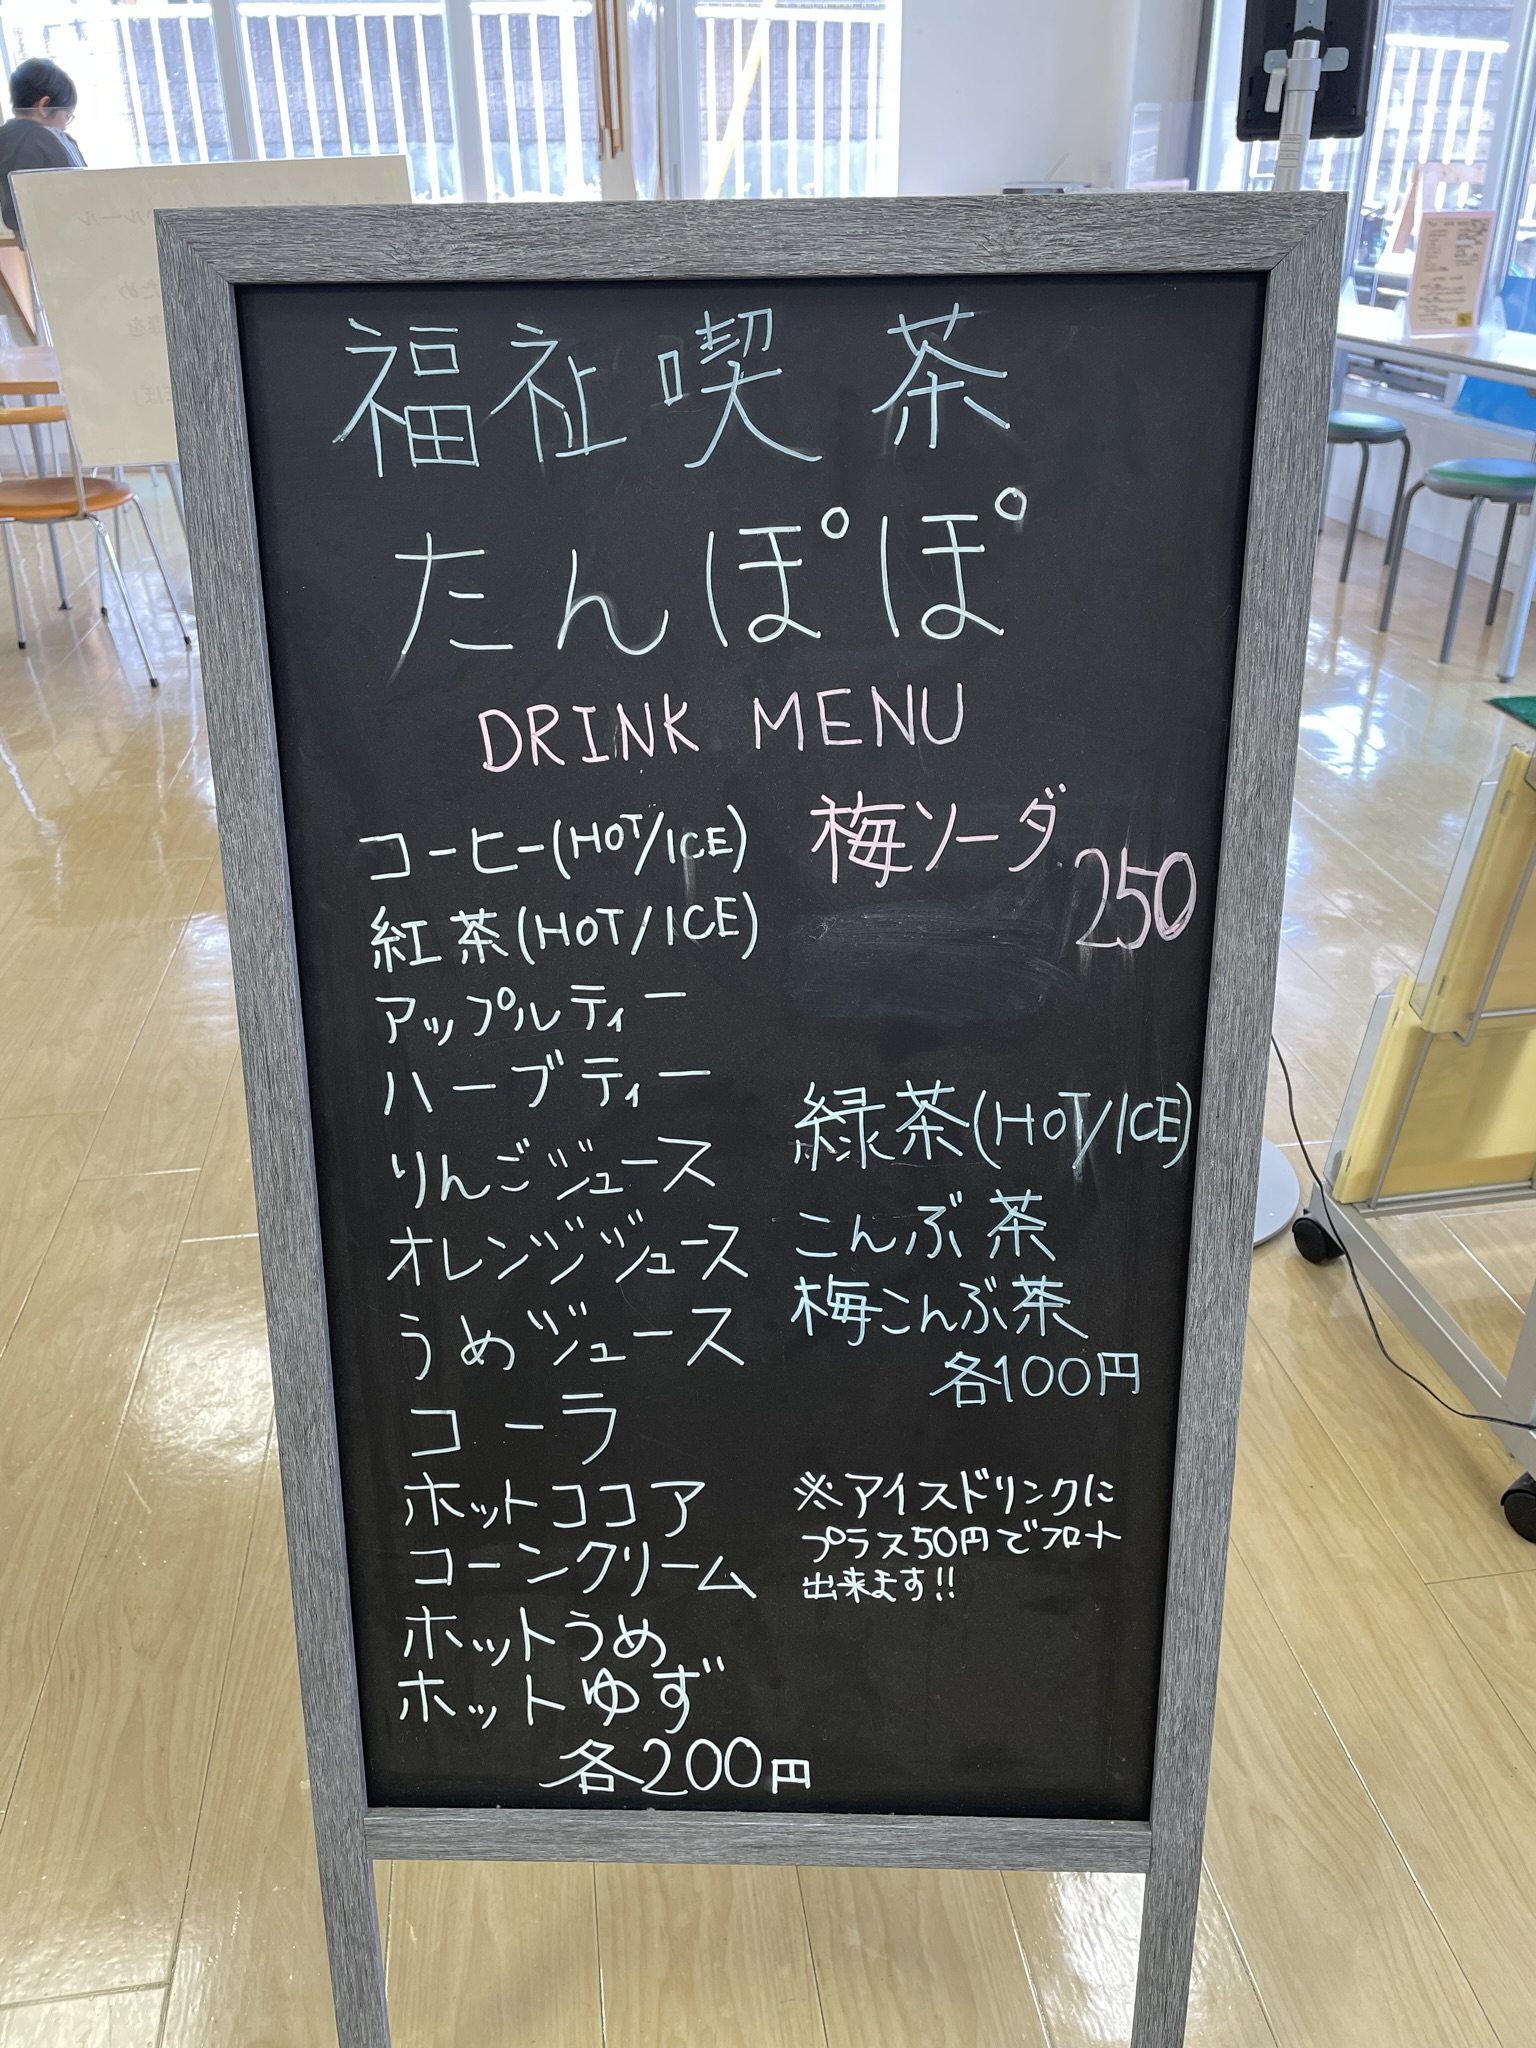 福祉喫茶
たんぽぽ
DRINK MENU
コーヒー(HOT/ICE)
紅茶(HOT/ICE)
アップルティー
ハーブティー
りんごジュース
オレンジジュース
うめジュース
コーラ
ホットココア
コーンクリーム
ホットうめ
ホットゆず
各200円
梅ソーダ
250
緑茶(HOT/ICE)
こんぶ茶
梅こんぶ茶
各100円
※アイスドリンクに
プラス50円でフロート
出来ます!!